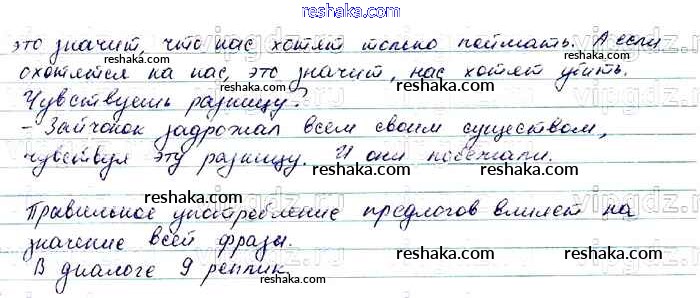 reshaka.com
это значит, что нас хотят только поймать. А если
охотятся на нас, это значит, нас хотят убить.
reshaka.com
Чувствуешь разницу?
reshaka.com
- Зайчонок задрожал всем своим существом,
чувствуя эту разницу. И они побежали.
reshaka.com
reshaka.com
Правильное употребление предлогов влияет на
значение всей фразы.
reshaka.com
reshaka.com
В диалоге 9 реплик.
reshaka.com